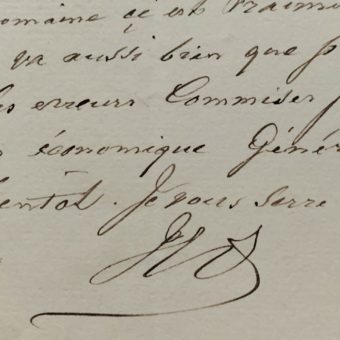 domaine c'est vraim
va aussi bien que p
erreurs Commises
économique Génér
bientôt. Je vous serre